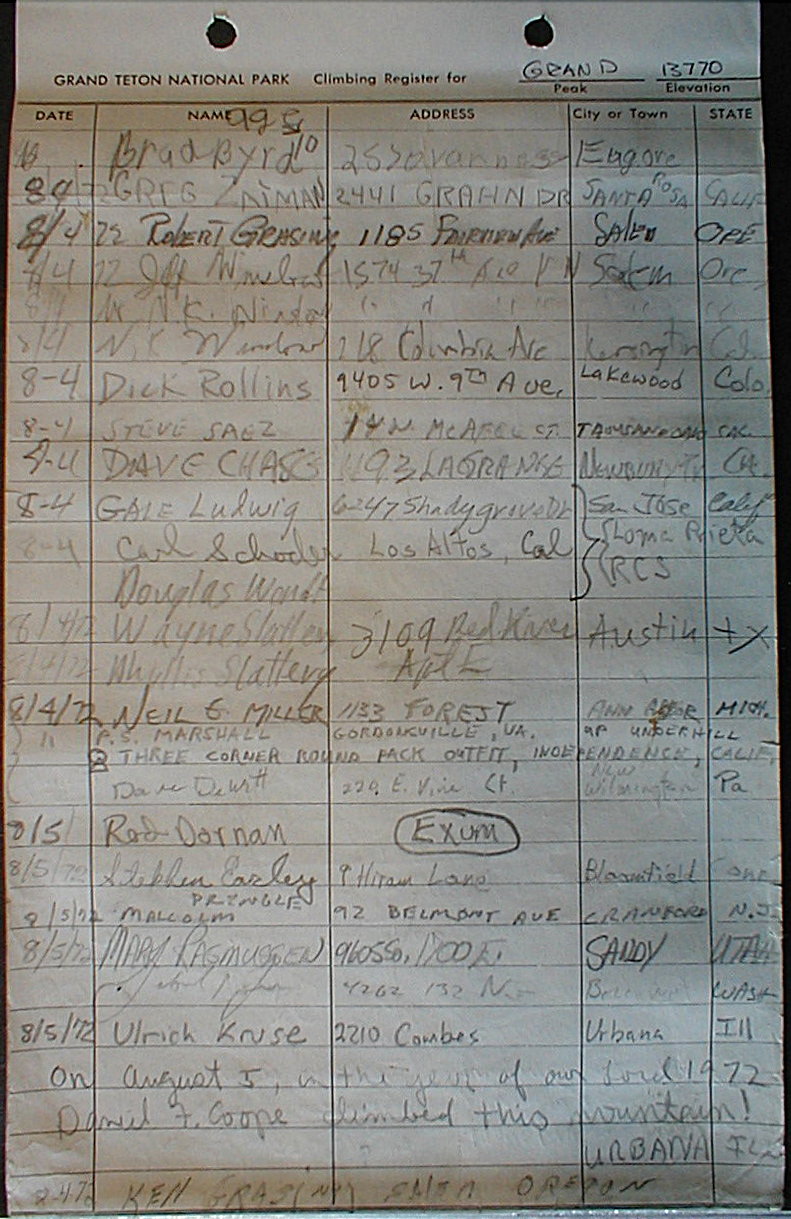 GRAND TETON NATIONAL PARK Climbing Register for GRAND 13770
Peak Elevation
DATE NAME ADDRESS City or Town STATE
Brad Byrd Eugore
GREG ZATMAN 2441 GRAHN DR SANTA ROSA CALIF
8/4 72 ROBERT GRASING 1185 FAIRVIEW AVE SALEM ORE
8/4 72 Jeff 1574 37th Salem Ore,
N.K.
8/4 N.K. 218 Columbia Ave Kensington Cal.
8-4 Dick Rollins 9405 W. 9TH Ave, Lakewood Colo.
8-4 STEVE SAEZ N. MCAFEE CT. THOUSAND OAKS CAL.
8-4 DAVE CHASE 1193 LAGRANGE NEWBURY
8-4 GALE Ludwig 6247 Shadygrove Dr San Jose Calif
8-4 Carl Schoder Los Altos, Cal Loma Prieta
Douglas RCS
8/4/72 Wayne Slattery 3109 Red River Austin tx
8/4/72 Phyllis Slattery Apt E
8/4/72 NEIL E. MILLER 1133 FOREST ANN ARBOR MICH.
" P.S. MARSHALL GORDONSVILLE, VA. UP UNDERHILL
THREE CORNER ROUND PACK OUTFIT, INDEPENDENCE, CALIF.
Dave Dewitt 220 E. Vine St. New Wilmington Pa
8/5/ Rod Dornan Exum
8/5/72 Stephen Earley 8 Hiram Lane Bloomfield Conn
PRINGLE
8/5/72 MALCOLM 92 BELMONT AVE CRANFORD N.J.
8/5/72 MARK RASMUSSEN 960 So. 1700 E. SANDY UTAH
4262 132 WASH
8/5/72 Ulrich Kruse 2210 Combes Urbana Ill
On August 5, in the year of our Lord 1972
Daniel F. Coope climbed this mountain!
URBANA ILL
KEN GRASING SALEM OREGON